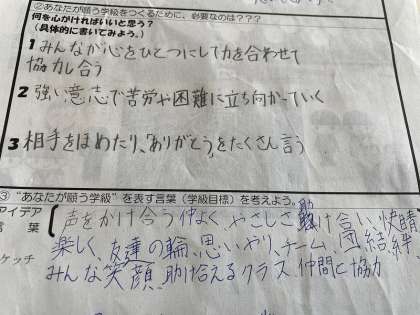 ②あなたが願う学級をつくるために、必要なのは？？？
何を心がければいいと思う？
（具体的に書いてみよう。）
1 みんなが心をひとつにして力を合わせて
協力し合う
2 強い意志で苦労や困難に立ち向かっていく
3 相手をほめたり、「ありがとう」をたくさん言う
③ “あなたが願う学級”を表す言葉（学級目標）を考えよう。
アイデア 声をかけ合う 仲よく、やさしさ 助け合い、快晴
言葉 楽しく、友達の輪、思いやり、チーム、団結、絆、
ケッチ みんな笑顔、助け合えるクラス、仲間と協力